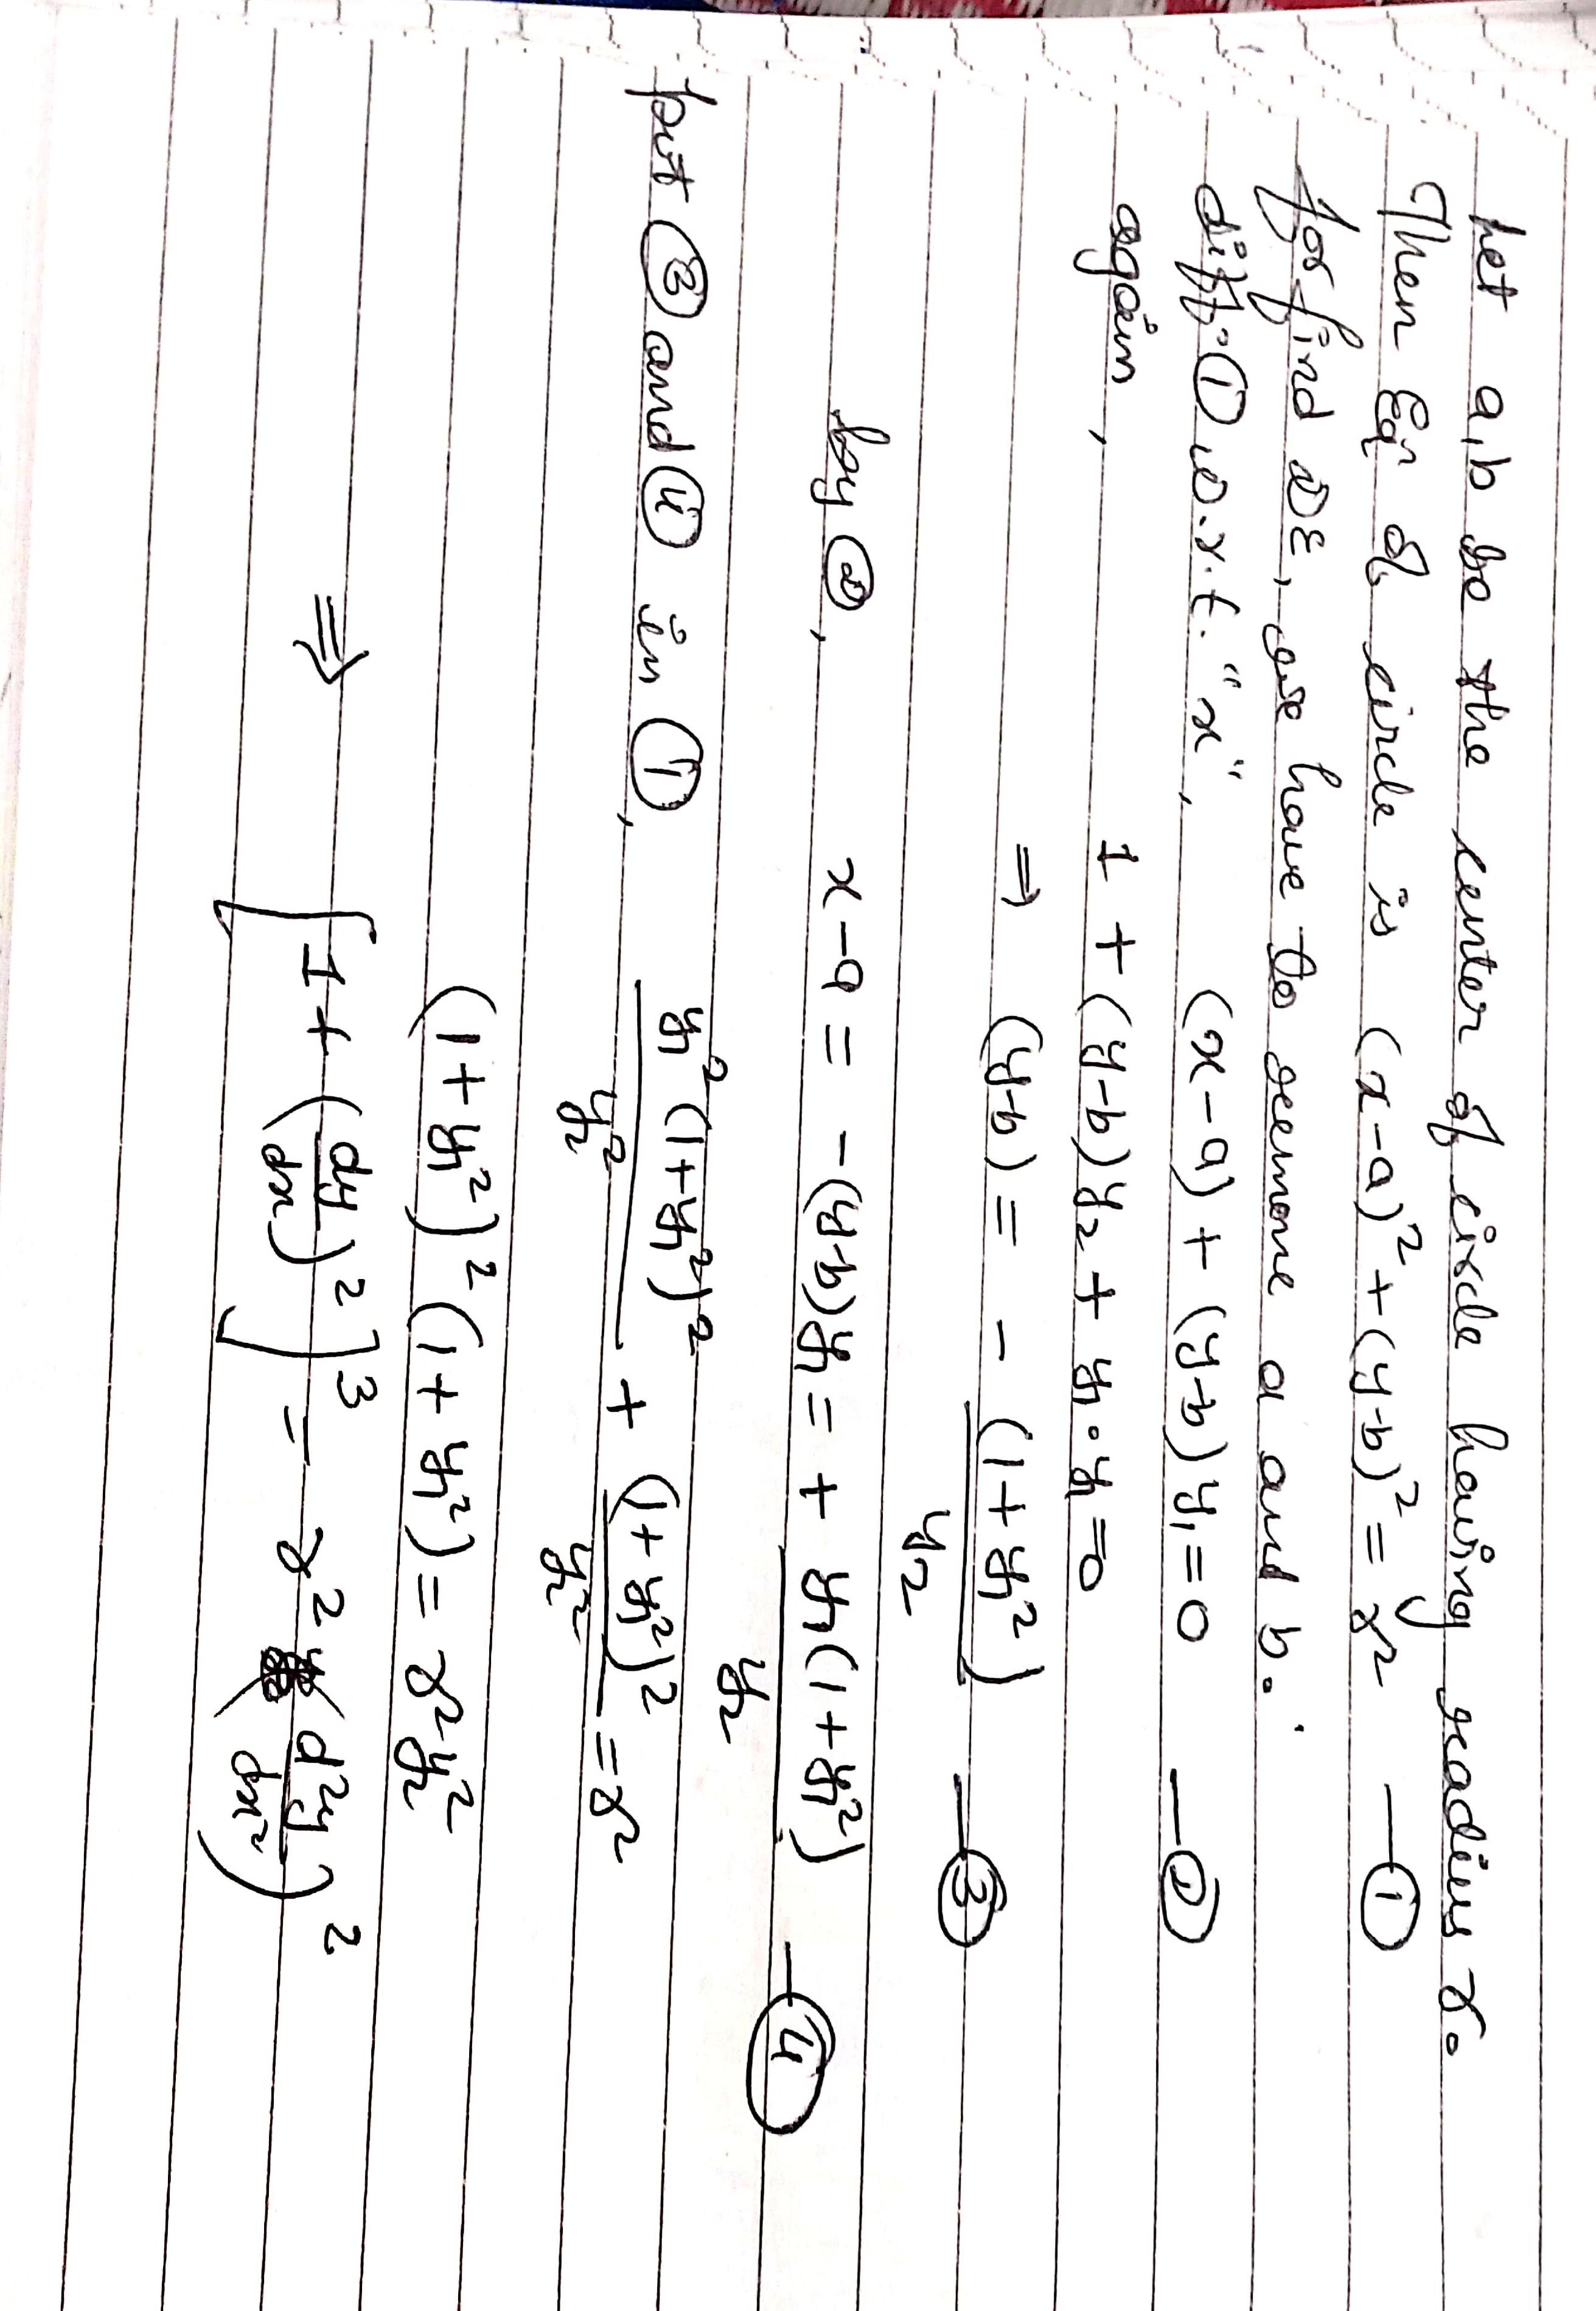 Let a,b be the center of circle having radius r.
Then Eqⁿ of circle is (x-a)² + (y-b)² = r² — ①
for find DE, we have to remove a and b.
diff. ① w.r.t. "x", (x-a) + (y-b) y₁ = 0 — ②
again, 1 + (y-b) y₂ + y₁·y₁ = 0
⇒ (y-b) = - (1+y₁²)/y₂ — ③
by ②, x-a = -(y-b)y₁ = + y₁(1+y₁²)/y₂ — ④
put ③ and ④ in ①, y₁²(1+y₁²)²/y₂² + (1+y₁²)²/y₂² = r²
(1+y₁²)² (1+y₁²) = r²y₂²
⇒ [1 + (dy/dx)²]³ = r² (d²y/dx²)²